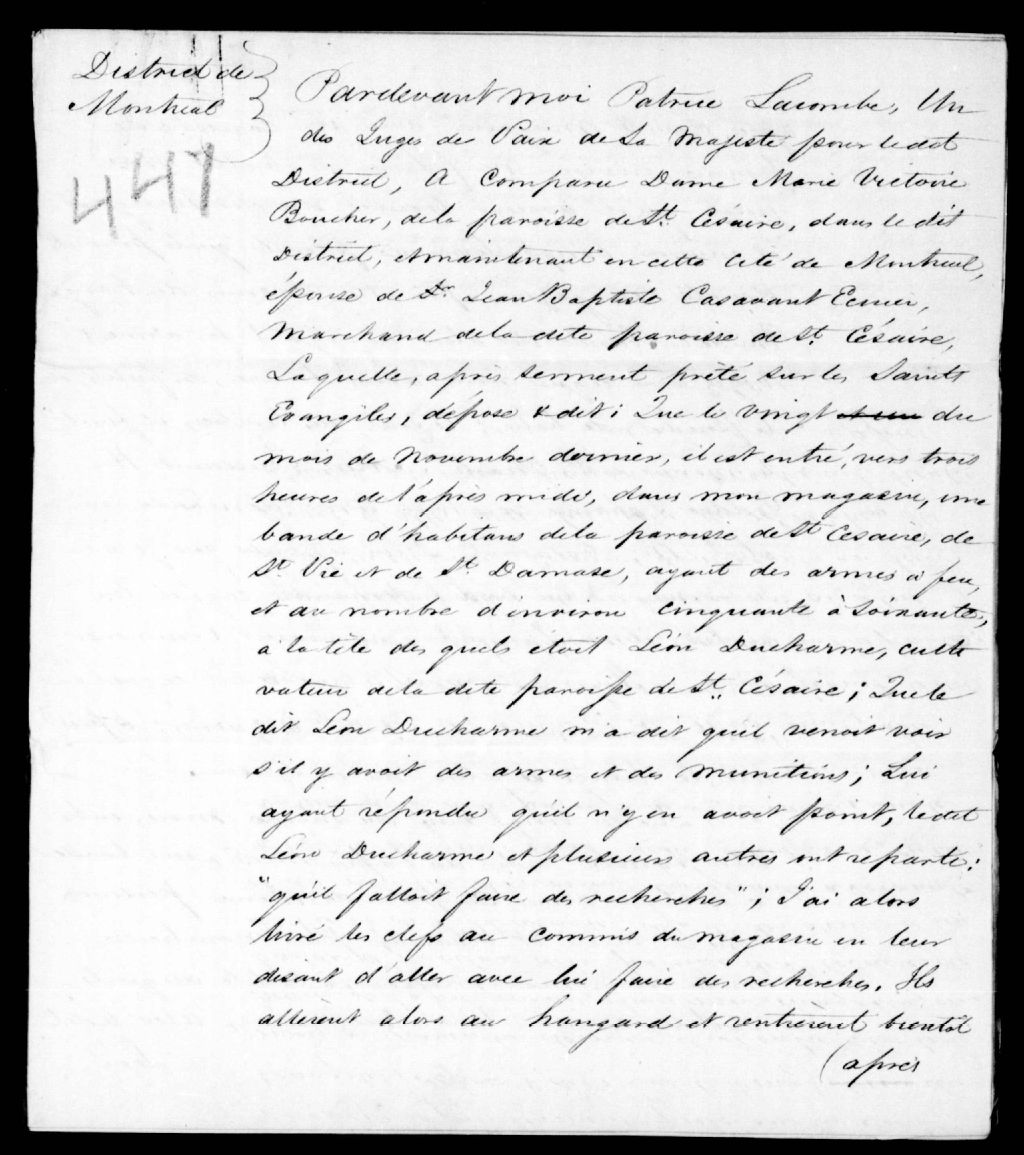 District de
Montréal
447
Pardevant moi Patrice Lacombe, Un
des Juges de Paix de Sa Majesté pour le dit
District, A Comparu Dame Marie Victoire
Boucher, de la paroisse de St. Césaire, dans le dit
District, et maintenant en cette Cité de Montreal,
épouse de Sr. Jean Baptiste Casavant Ecuier,
Marchand de la dite paroisse de St. Césaire,
Laquelle, après serment prêté sur les Saints
Evangiles, dépose & dit; Que le vingt du
mois de Novembre dernier, il est entré, vers trois
heures de l'après midi, dans mon magasin, une
bande d'habitans de la paroisse de St Cesaire, de
St. Pie et de St. Damase, ayant des armes à feu,
et au nombre d'environ cinquante à soixante,
à la tête des quels etoit Léon Ducharme, culti
vateur de la dite paroisse de St. Césaire; Que le
dit Léon Ducharme m'a dit qu'il venoit voir
s'il y avoit des armes et des munitions; Lui
ayant répondu qu'il n'y en avoit point, le dit
Léon Ducharme et plusieurs autres ont reparti:
"qu'il falloit faire des recherches"; J'ai alors
livré les clefs au commis du magasin en leur
disant d'aller avec lui faire des recherches. Ils
allerent alors au hangard et rentrerent bientôt
(après